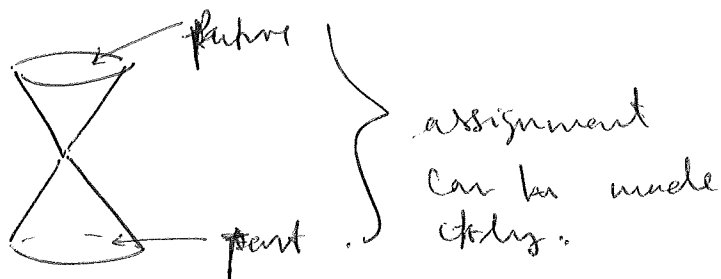 future
past
assignment
can be made
ctsly.